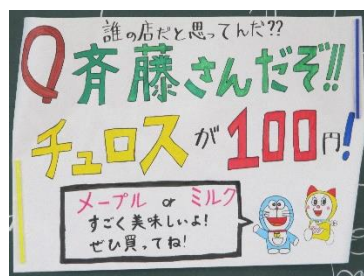 誰の店だと思ってんだ??
斉藤さんだぞ!!
チュロスが100円!
メープル or ミルク
すごく美味しいよ!
ぜひ買ってね!